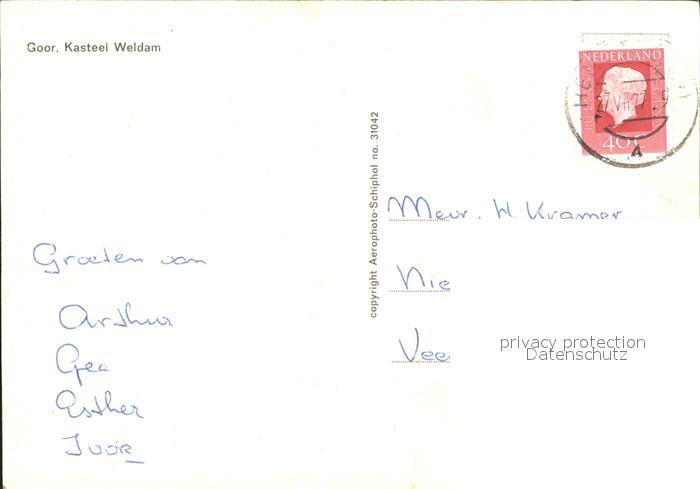 Goor, Kasteel Weldam
NEDERLAND
40 c
A
copyright Aerophoto-Schiphol no. 31042
Mevr. W. Kramer
Nie
Vee
privacy protection
Datenschutz
Groeten van
Arthur
Gea
Esther